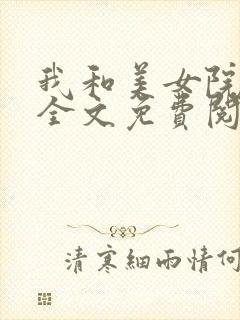 我和美女院
全文免费阅
清寒細雨情何